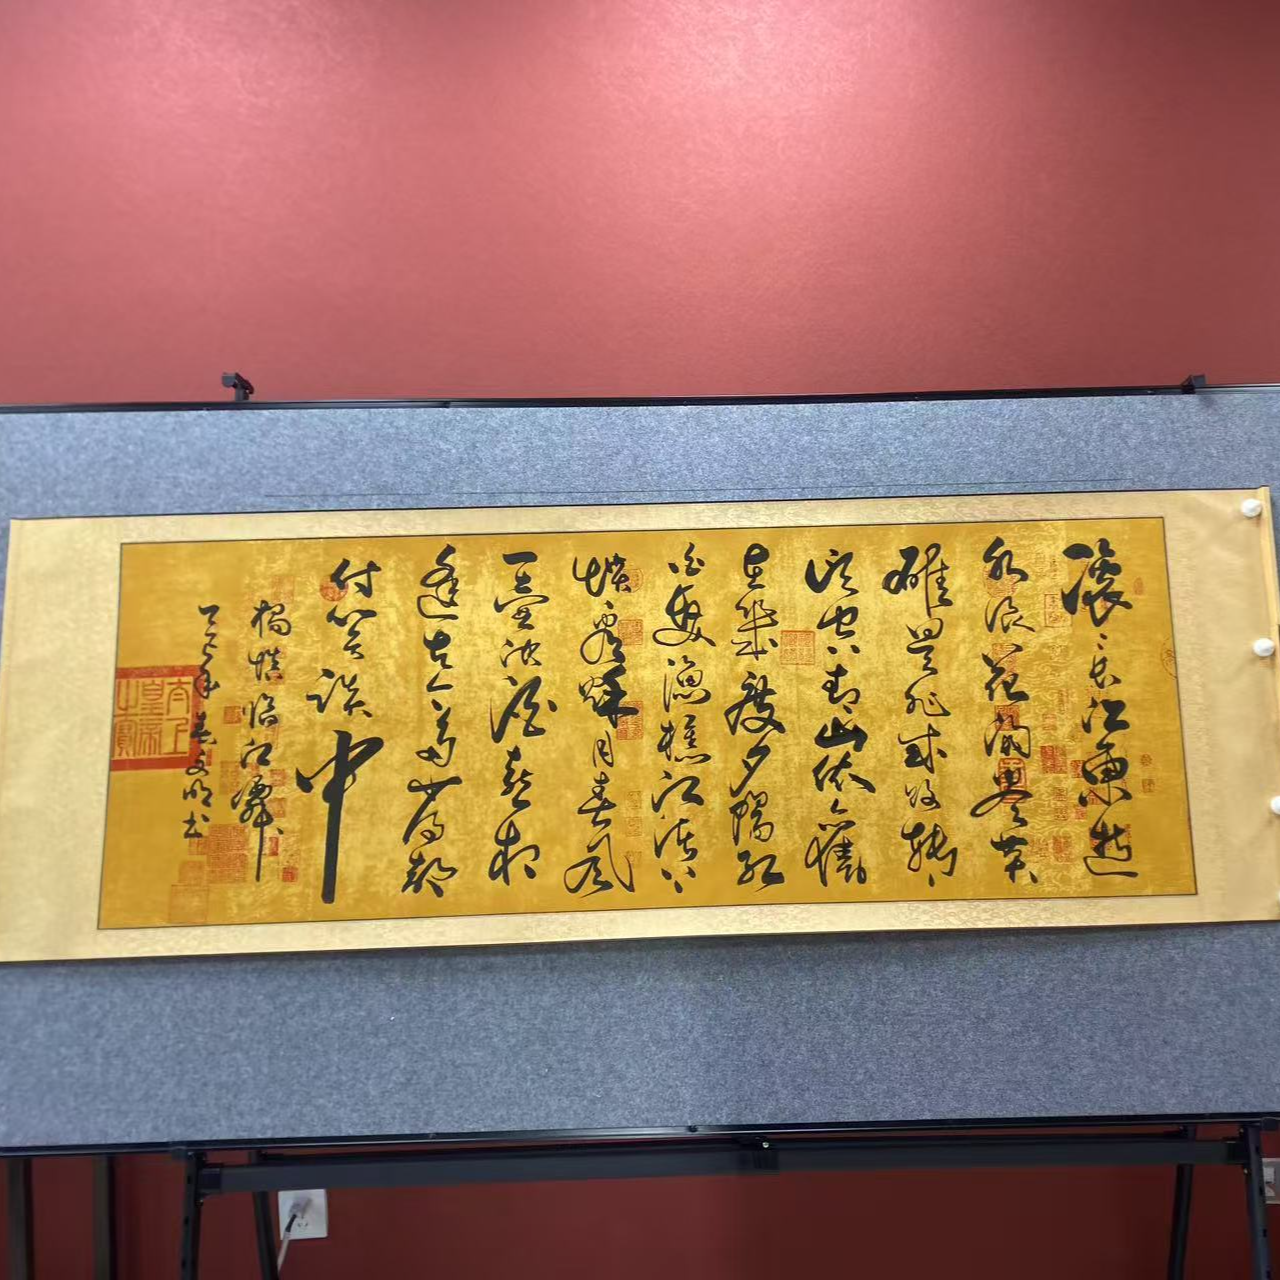 滚滚长江东逝
水浪花淘尽英
雄是非成败转
头空青山依旧
在几度夕阳红
白发渔樵江渚上
惯看秋月春风
一壶浊酒喜相
逢古今多少事都
付笑谈中
杨慎临江仙
乙巳年春文明书
太上皇帝之宝